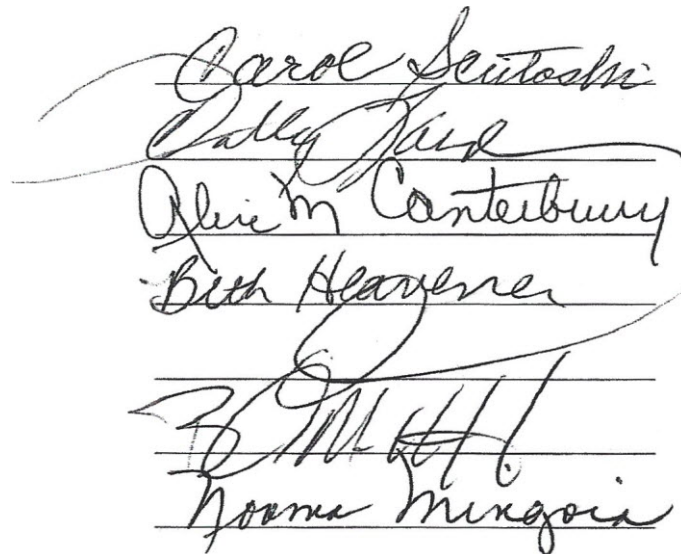 Carol Scutoski
Dolly
Alice M Canterbury
Beth Heavener
Norma Mingoia